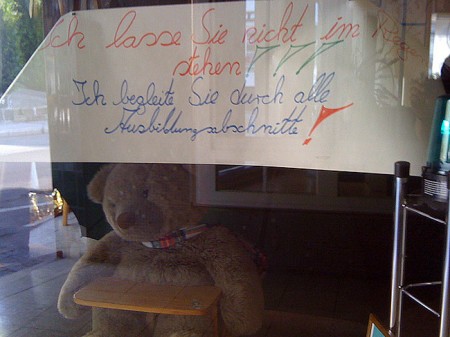 Ich lasse Sie nicht im
stehen !!!
Ich begleite Sie durch alle
Ausbildungsabschnitte!